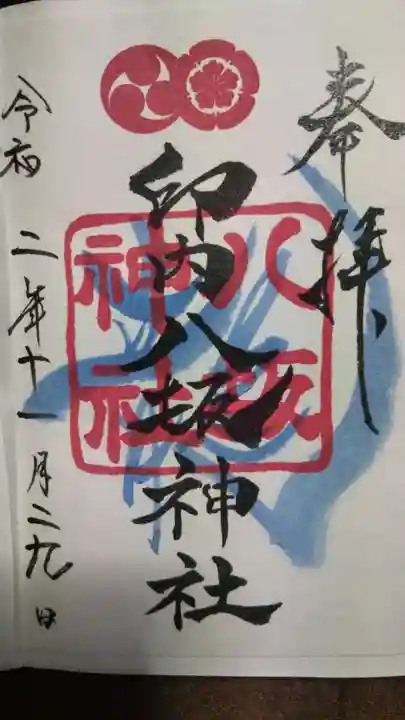 奉拝
印内八坂神社
八坂
神社
令和二年十一月二九日